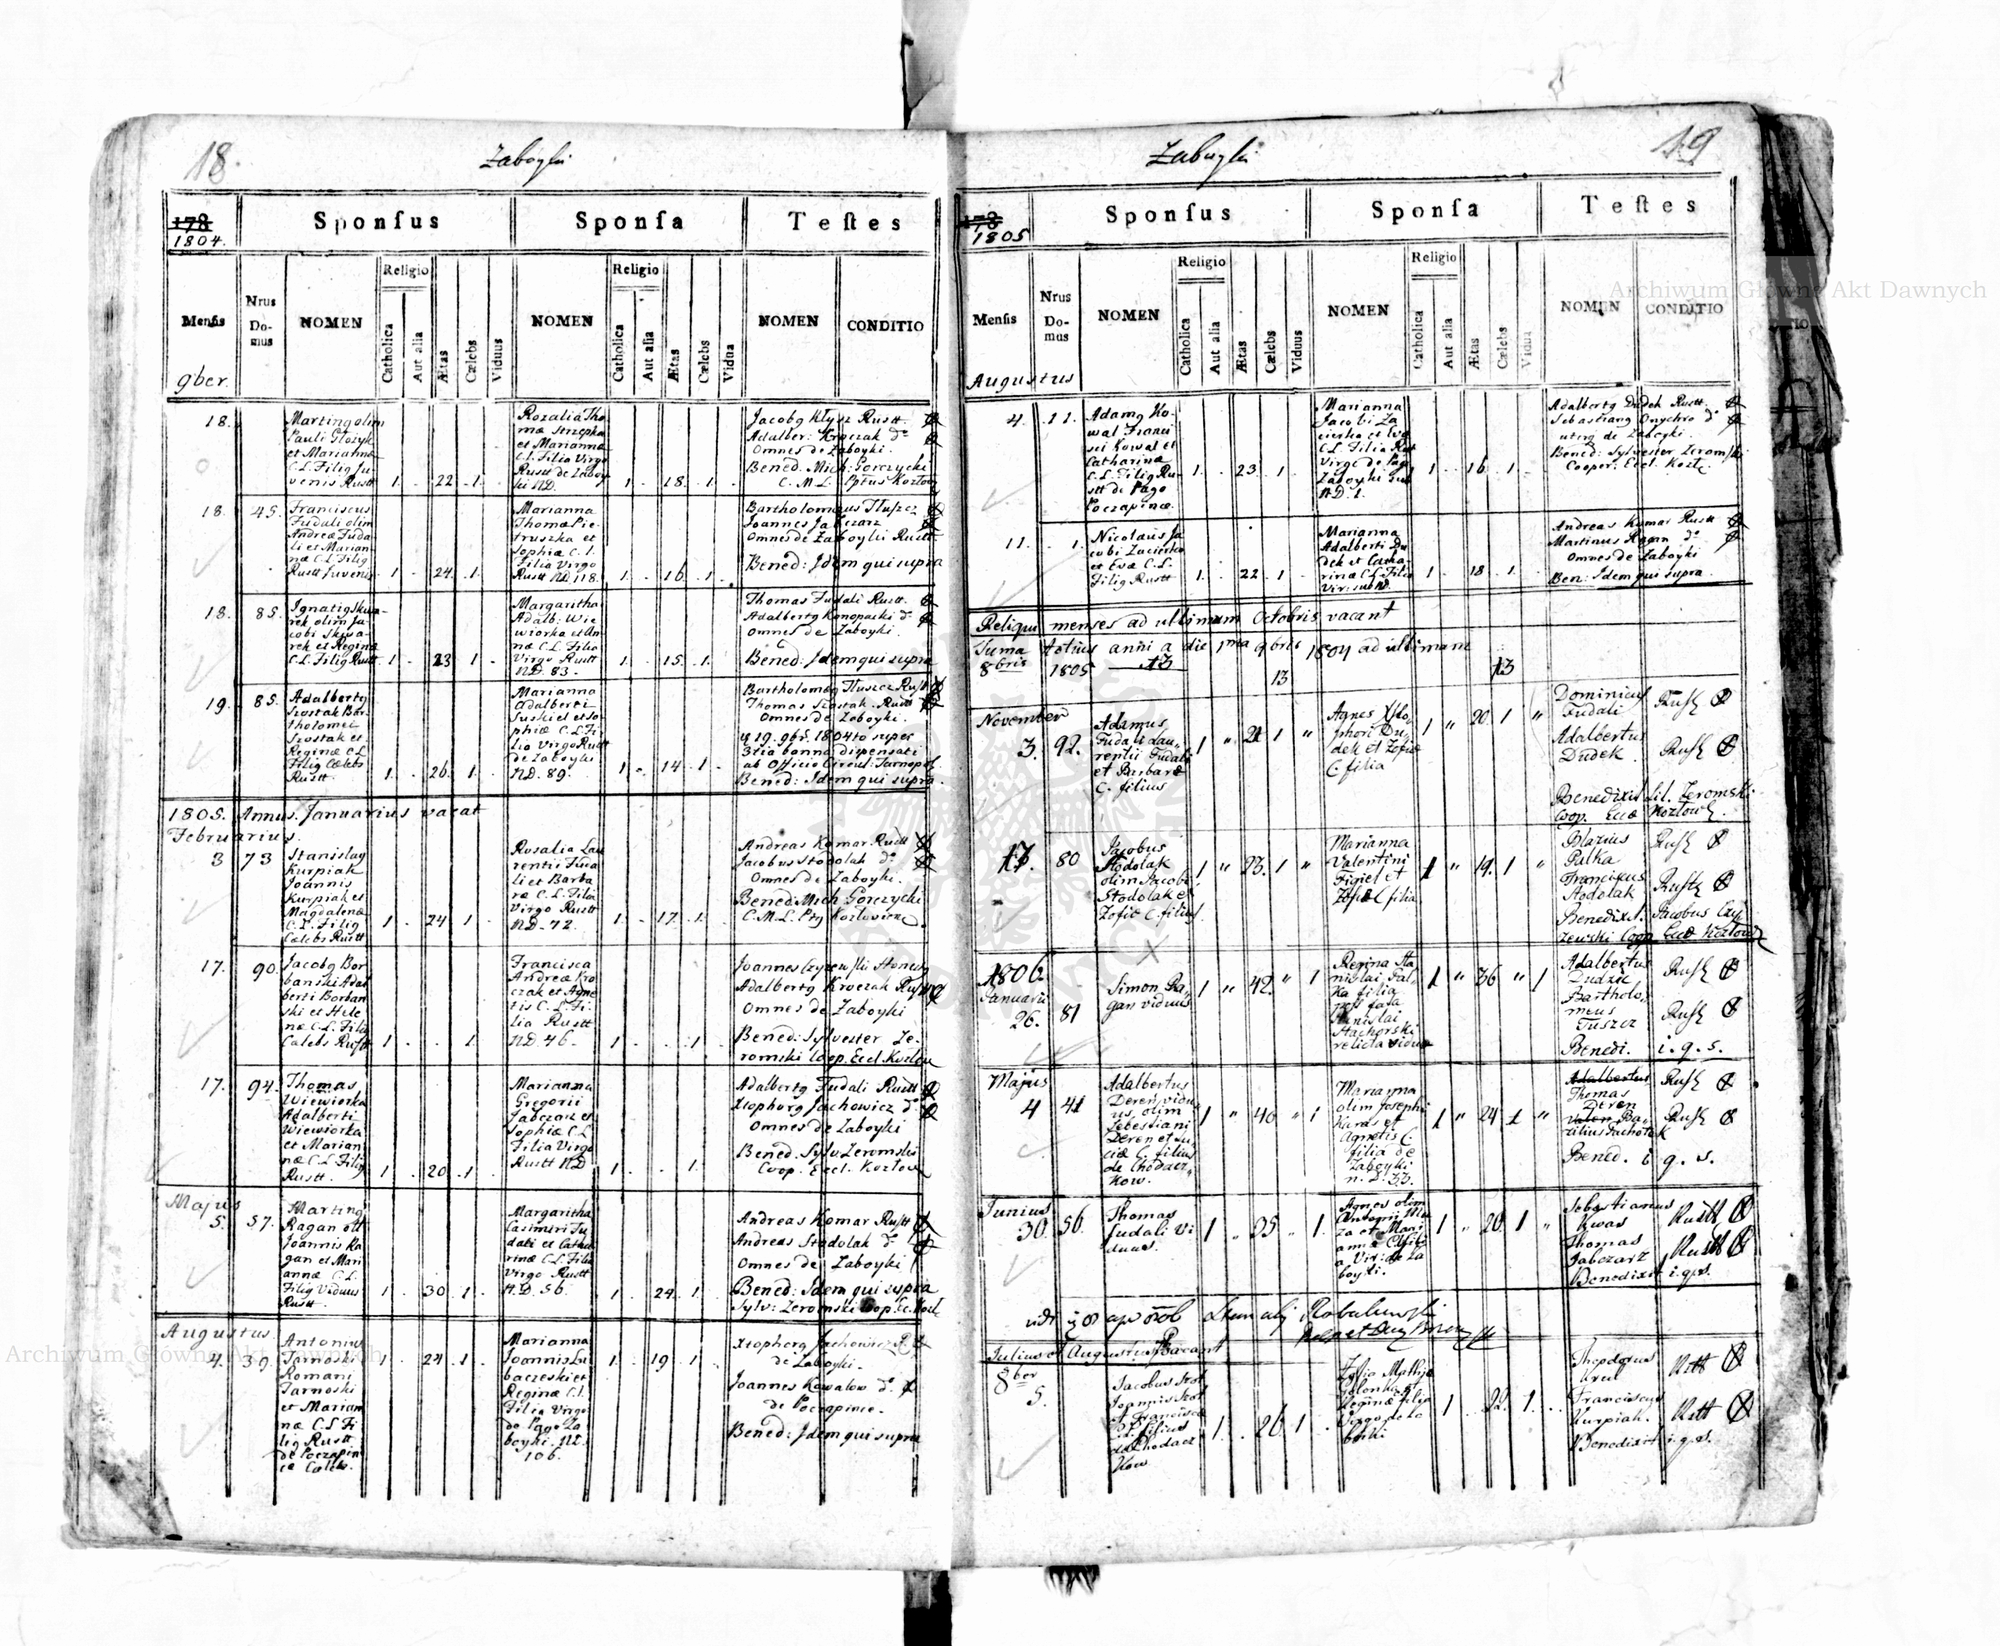 18.
Zaboyki
178
1804.
Sponſus
Sponſa
Teſtes
Menſis
Nrus Do-mus
NOMEN
Religio
Catholica
Aut alia
Ætas
Cælebs
Viduus
NOMEN
Religio
Catholica
Aut alia
Ætas
Cælebs
Vidua
NOMEN
CONDITIO
9ber.
18.
Pauli
et Marianna
C.L. Filig Ju-
venis Rustt
1. 22. 1.
Rozalia Tho
mæ Strzepka
et Marianna
C.L. Filia Virgo
Rustt de Zaboy
ki N.D.
1. 18. 1.
Jacobg Klysz Rustt.
Adalber: Kroczak do
Omnes de Zaboyki.
Bened: Mich: Gorczycki
C. M. L.
18. 45.
Franciscus
Fudali olim
Andreæ Fuda
li et Marian
næ C.L. Filig
Rustt Juvenis
1. 24. 1.
Marianna
Thomæ Pie
truszka et
Sophiæ C.L.
Filia Virgo
Rustt N.D. 118.
1. 16. 1.
Bartholomæus Tluszcz
Joannes Jabczarz
Omnes de Zaboyki Rustt
Bened: Idem qui supra
18. 85.
Ignatig Skwa-
rek olim Ja-
cobi Skwa-
rek et Regina
C.L. Filig Rustt
1. 23 1.
Margaritha
Adalb: Wie
wiorka et An
næ C.L. Filia
Virgo Rustt
N.D. 83.
1. 15. 1.
Thomas Fudali Rustt.
Adalbertg Konopacki do
Omnes de Zaboyki.
Bened: Idem qui supra
19. 85.
Adalbertg
Szostak Bar
tholomei
Szostak et
Reginæ C.L.
Filig Cælebs
Rustt.
1. 26. 1.
Marianna
Adalberti
Suskiel et So
phiæ C.L. Fi
lia Virgo Rustt
de Zaboyki
N.D. 89.
1. 14. 1.
Bartholomeg Tluszcz Rustt
Thomas Szostak. Rustt
Omnes de Zaboyki.
19. 9bř. 1804to super
3tia banna dispensati
ab Officio Circul: Tarnopol
Bened: Idem qui supra.
1805. Annus. Januarius vacat
Februarius.
3 73
Stanislag
Kurpiak
Joannis
Kurpiak et
Magdalenæ
C.L. Filig
Cælebs Rustt
1. 24 1.
Rosalia Lau
rentii Fuda
li et Barba
ræ C.L. Filia
Virgo Rustt
N.D. 72.
1. 17. 1.
Andreas Komar Rustt
Jacobus Stodolak do
Omnes de Zaboyki.
Bened: Mich Gorczycki
C.M.L.
17. 90.
Jacobg Bor
banski Adal
berti Borban
ski et Hele
næ C.L. Filig
Cælebs Rustt
1. 1.
Francisca
Andreæ Kro
czak et Agne
tis C.L. Fi-
lia Rustt
N.D. 46.
1. 1.
Adalbertg Kroczak Rustt
Omnes de Zaboyki
Bened: Sylvester Ze-
romski Coop. Eccl. Kozlov
17. 94.
Thomas
Wiewiorka
Adalberti
Wiewiorka
et Marian
næ C.L. Filig
Rustt.
1. 20. 1.
Marianna
Gregorii
Jabczarz et
Sophiæ C.L.
Filia Virgo
Rustt N.D.
1. 1.
Adalbertg Fudali Rustt
Xtophorg Jachowicz do
Omnes de Zaboyki
Bened: Sylv: Zeromski
Coop. Eccl. Kozlov
Majus
5. 57.
Marting
Ragan
Joannis Ra
gan et Mari
annæ C.L.
Filig Viduus
Rustt.
1. 30. 1.
Margaritha
Casimiri Fu
dali et Catha
rinæ C.L. Filia
Virgo Rustt
N.D. 56.
1. 24. 1.
Andreas Komar Rustt
Andreas Stodolak do
Omnes de Zaboyki
Bened: Idem qui supra
Sylv: Zeromski Coop.
Augustus.
4. 39.
Antonius
Tarnoski
Romani
Tarnoski
et Marian
næ C.L. Fi
lig Rustt
de Poczapin
Cæleb.
1. 24. 1.
Marianna
Joannis Lu
baczeski et
Reginæ C.L.
Filia Virgo
de Pago Za
boyki. N.D.
106.
1. 19. 1.
Xtophorg Jachowicz
de Zaboyki.
Joannes Kowalow do.
de Poczapince.
Bened: Idem qui supra
19
Zaboyki
178
1805
Sponſus
Sponſa
Teſtes
Menſis
Nrus Do-mus
NOMEN
Religio
Catholica
Aut alia
Ætas
Cælebs
Viduus
NOMEN
Religio
Catholica
Aut alia
Ætas
Cælebs
Vidua
NOMEN
CONDITIO
Augustus
4. 11.
Adamg Ko-
wal Franci
sci Kowal et
Catharina
C.L. Filig Ru-
stt de Pago
Poczapinæ.
1. 23. 1.
Marianna
Jacobi Za
cierka et Eva
C.L. Filia Rus
Virgo de Pago
Zaboyki sub
N.D. 1.
1. 16. 1.
Adalbertg Dudek Rustt.
Sebastiang Onychro do
Bened: Sylvester Zeromski
Cooper: Eccl. Kozl.
11. 1.
Nicolaus Ja
cobi Zacierka
et Evæ C.L.
Filig Rustt
1. 22. 1.
Marianna
Adalberti Du
dek et Catha
rinæ C.L. Filia
1. 18. 1.
Andreas Komar Rustt
Martinus Ragan do
Omnes de Zaboyki
Ben: Idem qui supra.
Reliqui menses ad ultimum Octobris vacant
Suma totius anni a die 1ma 9bris 1804 ad ultimam
8bris 1805 13
13 13
November
3. 92.
Adamus
Fudali Lau-
rentii Fudali
et Barbaræ
C. filius
1 " 21 1 "
Agnes Xsto-
phori Du-
dek et Zofiæ
C. filia
1 " 20. 1 "
Dominicus
Fudali
Rustt
Adalbertus
Dudek
Rustt
Benedixit Sil. Zeromski
Coop. Eccl. Kozlow.
17. 80
Jacobus
Stodolak
olim Jacobi
Stodolak et
Zofiæ C. filius
1 " 23. 1 "
Marianna
Valentini
Figiel et
Zofiæ C filia
1 " 19. 1 "
Blazius
Palka
Rustt
Franciscus
Stodolak
Rustt
Benedixit. Jacobus Czy
zewski Coop Eccl Kozlow
1806.
Januarii
26. 81
Simon Ra-
gan viduus
1 " 42. " 1
Regina Sta
nislai Pal-
ka filia
Stanislai
Stachorski
relicta vidua
1 " 36 " 1
Adalbertus
Dudzic
Rustt
Bartholo-
meus
Tuszcz
Rustt
Benedi. i. q. s.
Majus
4 41
Adalbertus
Deren vidu-
us, olim
Sebestiani
Deren et Lu-
ciæ C. filius
de Chodacz-
kow.
1 " 40 " 1
Marianna
olim Josephi
Karas et
Agnetis C
filia de
Zaboyki
n. D. 33.
1 " 24 1 "
Adalbertus
Thomas
Deren
Rustt
Rustt
Bened. i q. s.
Junius
30. 56.
Thomas
Fudali Vi
duus.
1 " 35 " 1.
Agnes olim
a Vir: de Za
boyki.
1 " 20. 1 "
Sebastianus
Kwas
Rustt
Thomas
Jabczarz
Rustt
Benedixit i.q.s.
Julius et Augustus Vacant
8ber
5.
Jacobus
Joannis
et Francisca
C.L. filius
de Chodacz
kow
1. 26. 1
Zofia Mathia
Golonka et
Reginæ filia
Virgo de Za
boiki
1 22. 1.
Theodorus
Krul
Rstt
Franciscus
Kurpiak.
Rstt
Benedixit i.q.s.
Archiwum Główne Akt Dawnych
Archiwum Główne Akt Dawnych